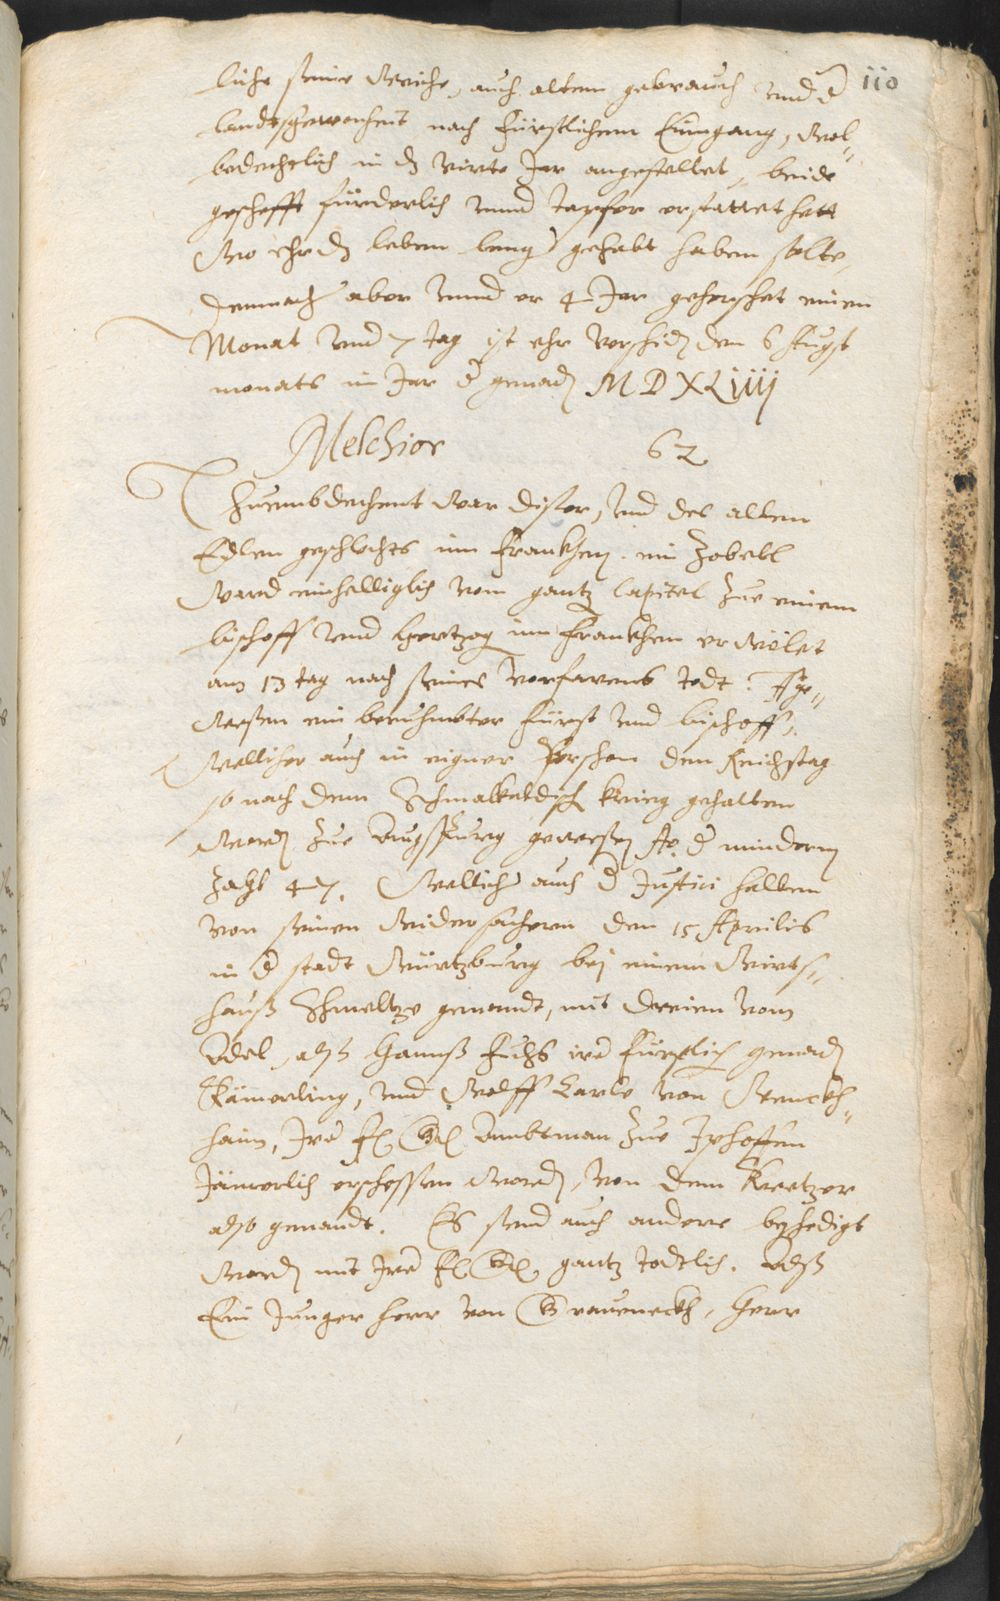 110
liche seine Reiche, auch altem gebrauch und d
landtsgewonheit nach fürstlichem Eingang, Wol=
bedechtlich in ds virte Jar angestellet, beide
geschefft fürderlich unnd dapfer erstattet hett
Wo ehr ds leben lenger gehabt haben solte,
demnach aber unnd er 4 Jar geherschet einen
Monat und 7 tag ist ehr verschiden den 6 Augst
monats im Jar d gnaden MDXLiiij
Melchior 62
Thumbdechent war diser, und des alten
Edlen geschlechts inn Franckhen ein Zobell
Ward einhelliglich vom gantz Capitel zue einem
bischoff unnd Hertzog inn Franckhen erwölet
am 13 tag nach seines vorfarens todt. Ist ge=
wesen ein beruhmbter fürst unnd bischoff,
Wellicher auch in eigner Person den Reichstag
so nach dem Schmalkaldisch krieg gehalten
worden zue Augspurg gewesen Ao. d mindern
Zahl 47. Wellicher auch d Justici halben
von seinen Widersachern den 15 Aprilis
in d stadt Würtzburg bei einem Wirts=
hauß Schmeltze genandt, mit dreien vom
Adel, alß Hannß Fuchs ire fürstlich gnaden
Kämerling, und Wolff Carle von Wenckh=
heim, Ire fl Gl Ambtman zue Iphoffen
Jämerlich erschossen worden, von dem Kretzer
also genandt. Es send auch andere beschedigt
worden mit Ire fl Gl gantz todtlich. Alß
Ein Junger herr von Graveneckh, Herr